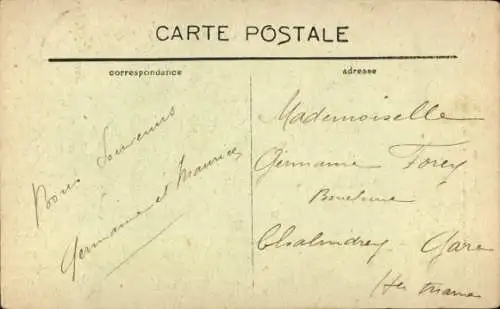 CARTE POSTALE
correspondance
adresse
Bons Souvenirs
Germaine et Maurice
Mademoiselle
Germaine Forey
Chalindrey - Gare
Hte Marne